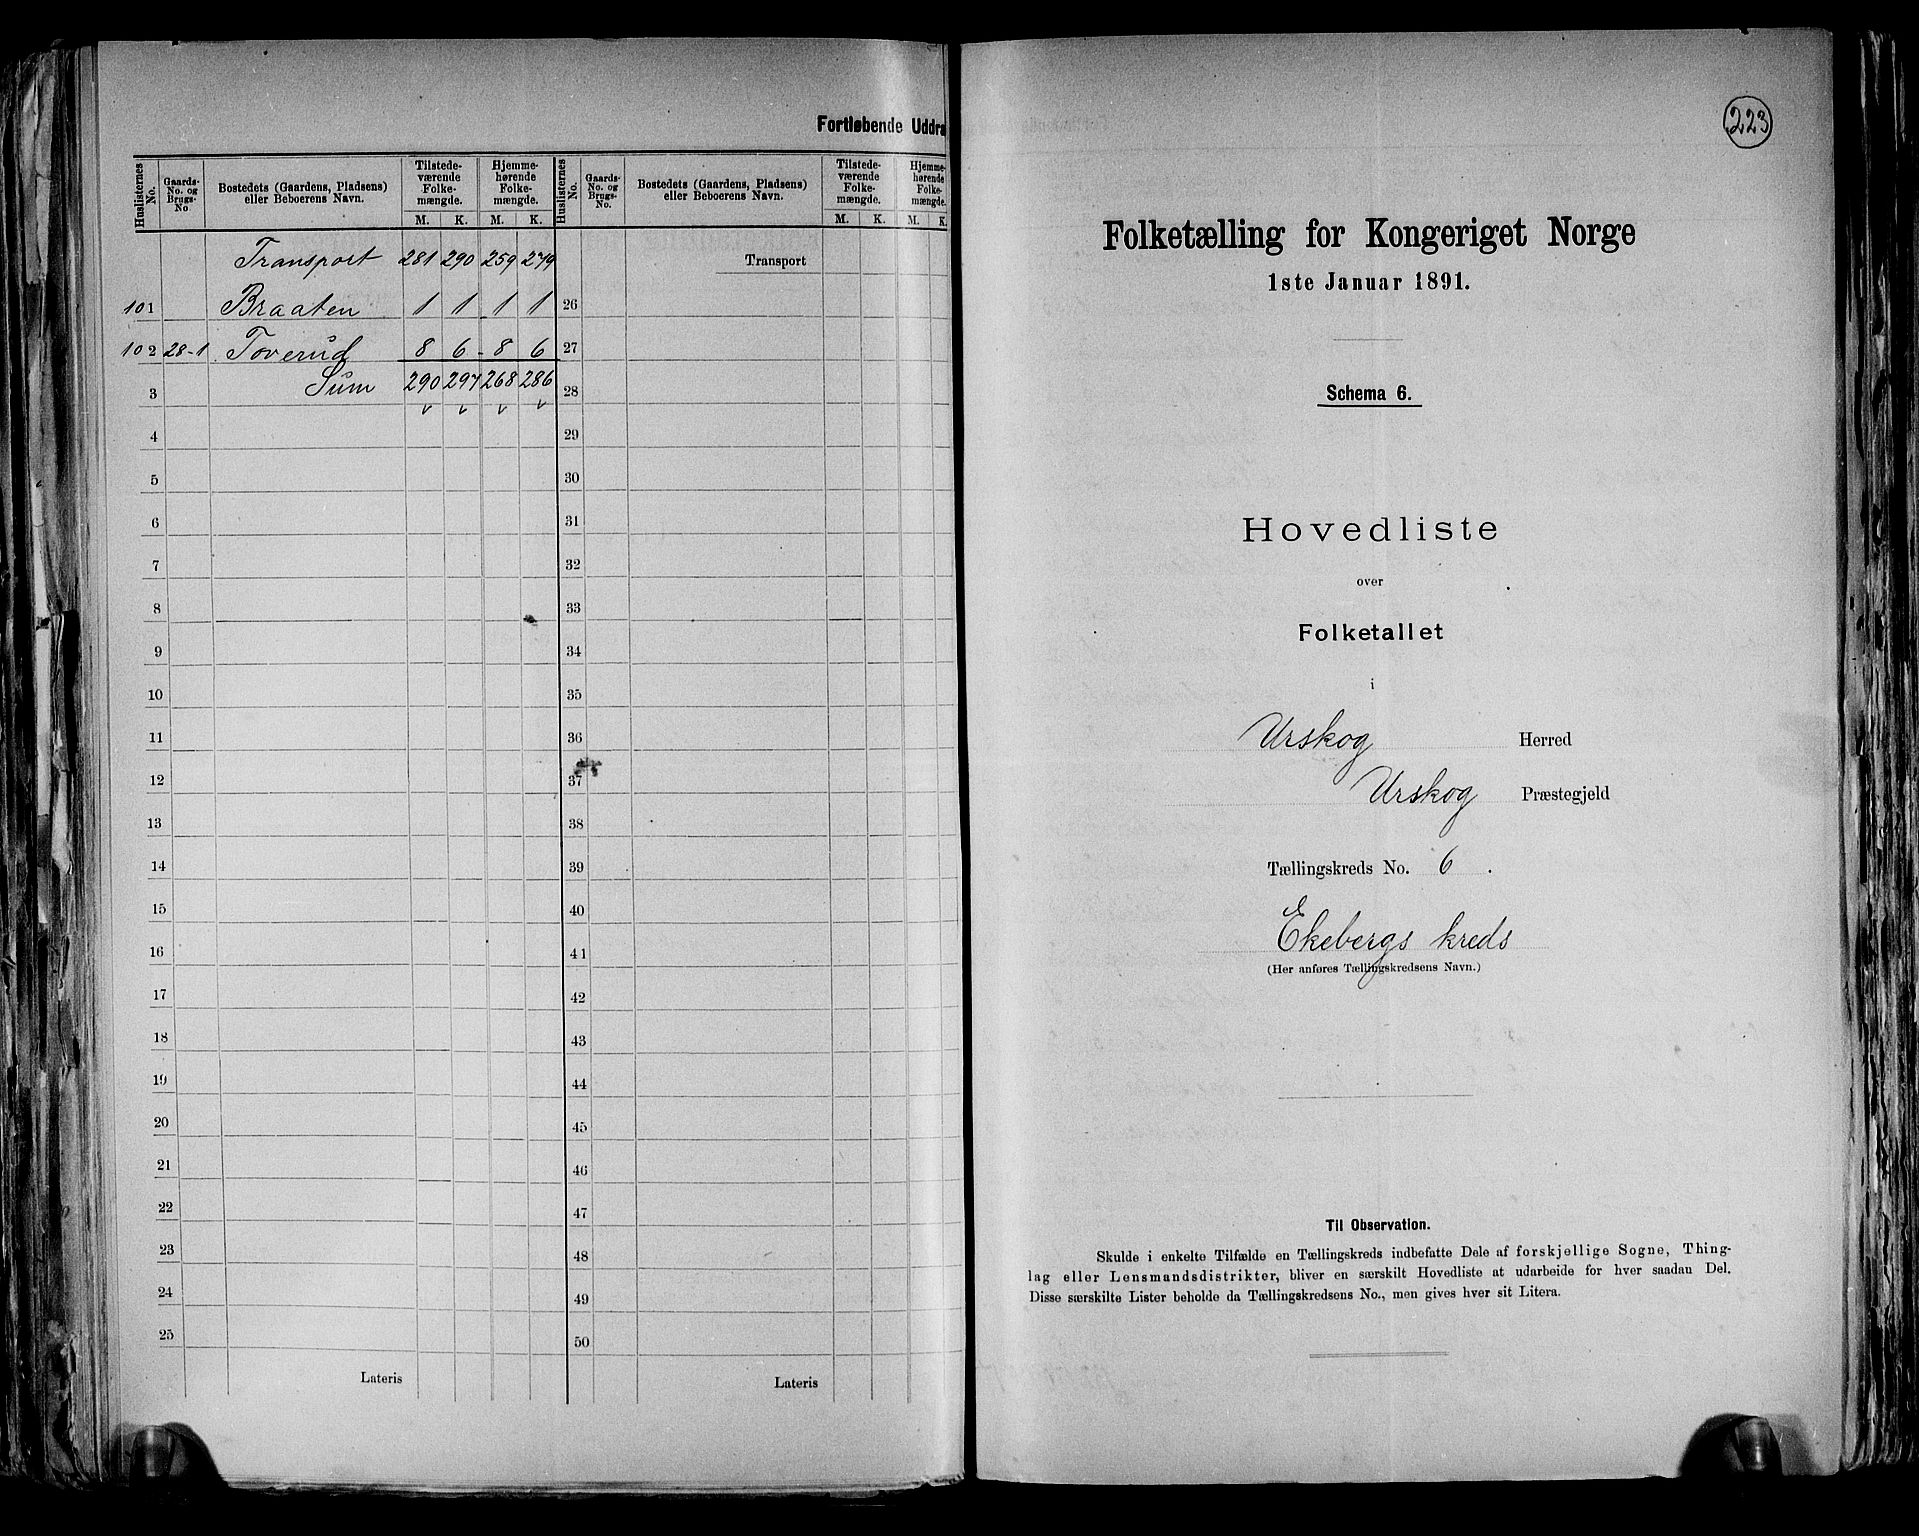 Fortløbende Uddra
Huslisternes No. Gaards-No. og Brugs-No Bostedets (Gaardens, Pladsens) eller Beboerens Navn. Tilstedeværende Folkemængde. M. K. Hjemmehørende Folkemængde. M. K. Huslisternes No. Gaards-No. og Brugs-No. Bostedets (Gaardens, Pladsens) eller Beboerens Navn. Tilstedeværende Folkemængde. M. K. Hjemmehørende Folkemængde. M. K.
Transport 281 290 259 279 Transport
101 Braaten 1 1 1 1 26
102 28-1 Toverud 8 6 - 8 6 27
3 Sum 290 297 268 286 28
4 29
5 30
6 31
7 32
8 33
9 34
10 35
11 36
12 37
13 38
14 39
15 40
16 41
17 42
18 43
19 44
20 45
21 46
22 47
23 48
24 49
25 50
Lateris Lateris
223
Folketælling for Kongeriget Norge
1ste Januar 1891.
Schema 6.
Hovedliste
over
Folketallet
i
Urskog Herred
Urskog Præstegjeld
Tællingskreds No. 6.
Ekebergs kreds
(Her anføres Tællingskredsens Navn.)
Til Observation.
Skulde i enkelte Tilfælde en Tællingskreds indbefatte Dele af forskjellige Sogne, Thing-
lag eller Lensmandsdistrikter, bliver en særskilt Hovedliste at udarbeide for hver saadan Del.
Disse særskilte Lister beholde da Tællingskredsens No., men gives hver sit Litera.